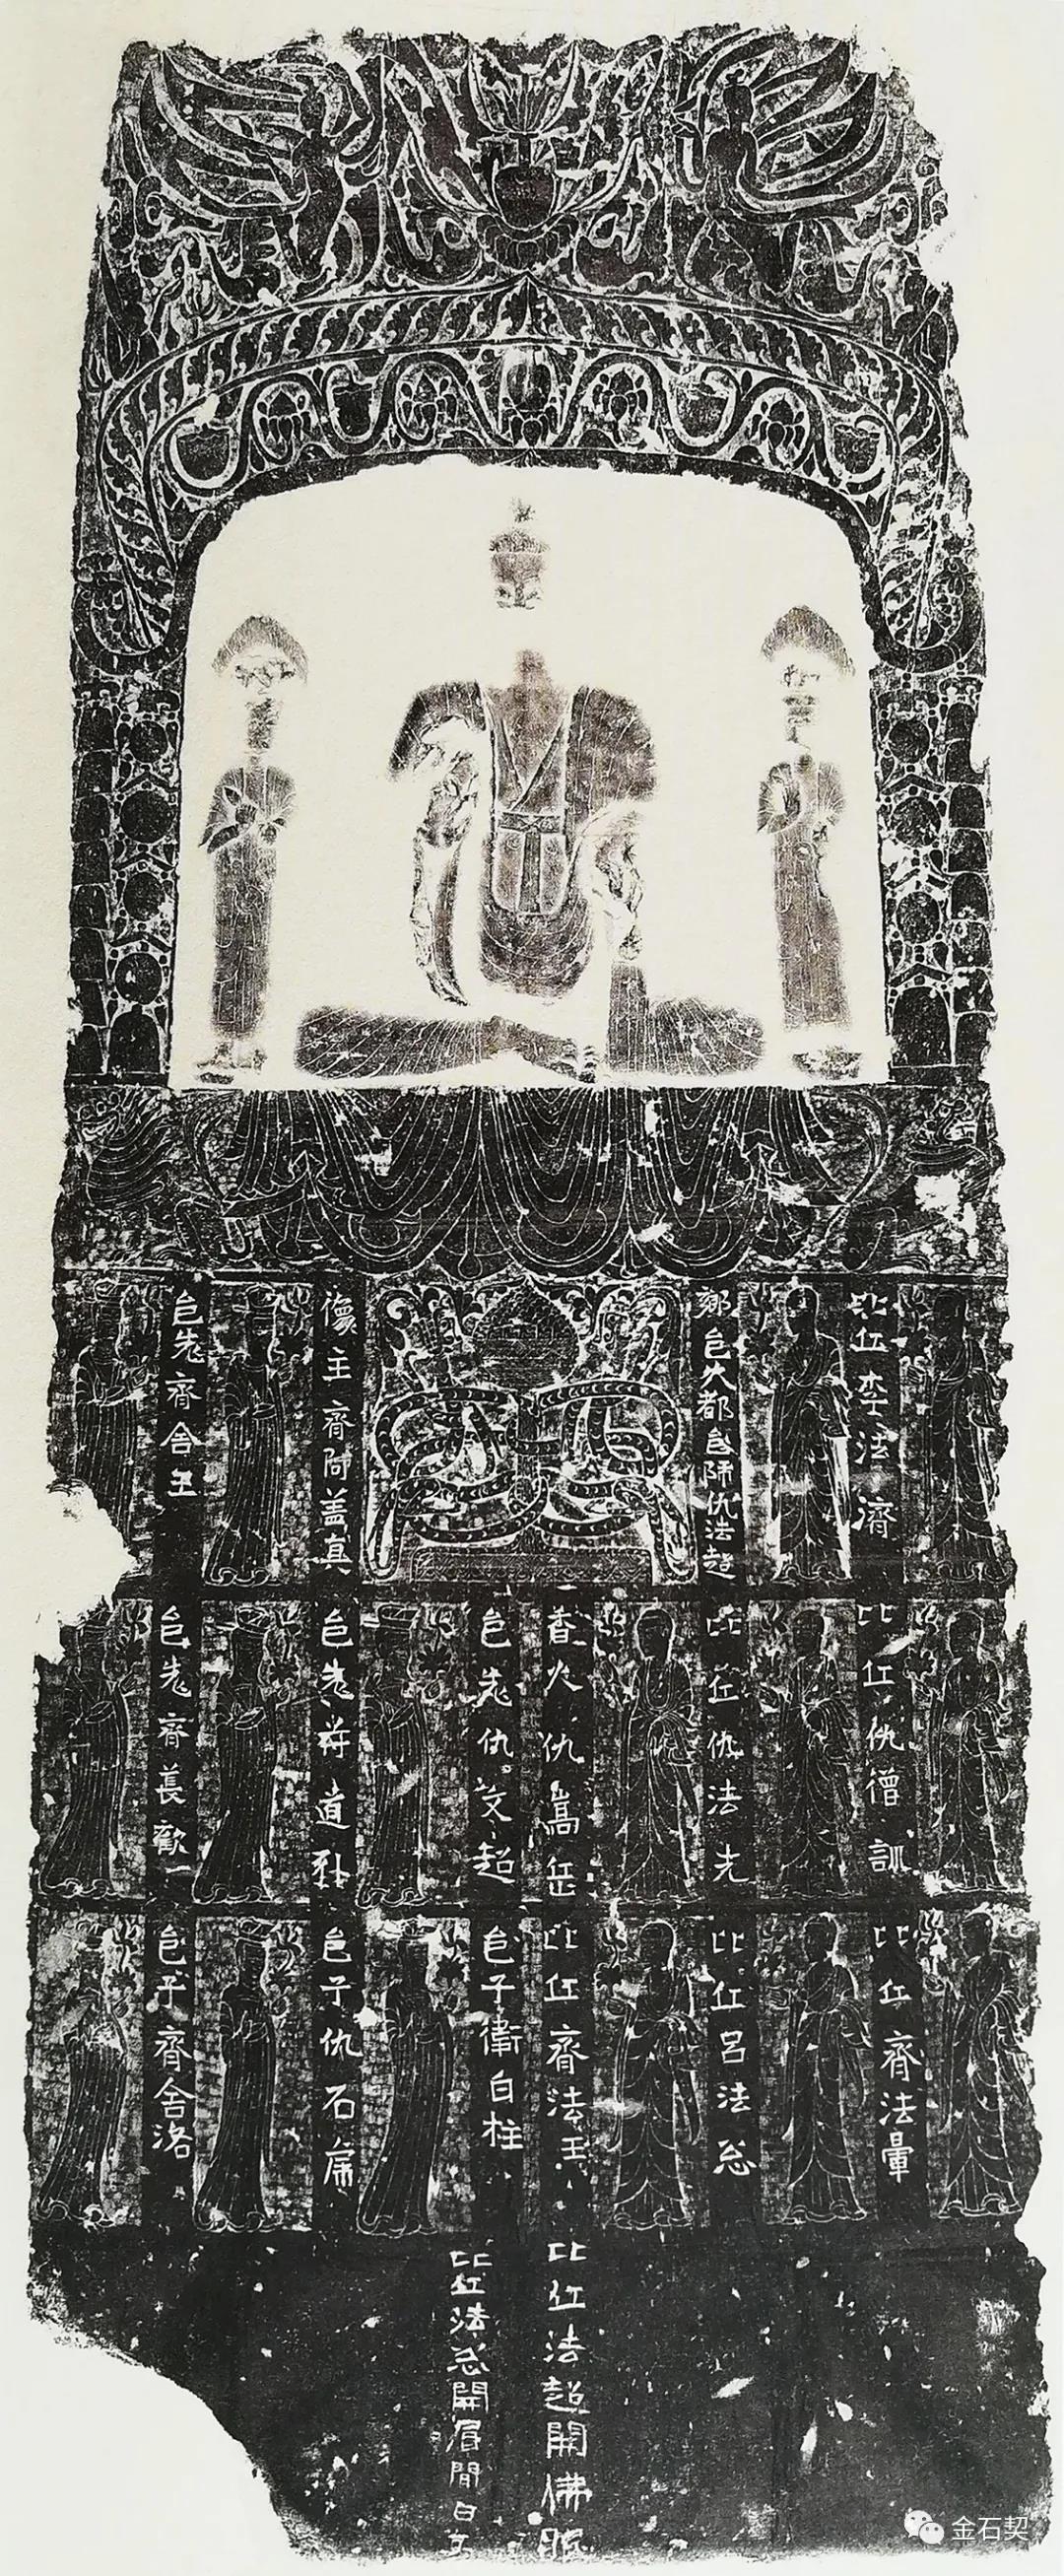 比丘李法濟
鄉邑大都邑師仇法超
像主齊阿蓋真
邑老齊舍王
比丘仇僧訓
比丘仇法光
香火仇嵩岳
邑老仇文超
邑老 道
邑老齊長歡一
比丘齊法暈
比丘呂法忩
比丘齊法玉
邑子衛白柱
邑子仇石虎
邑子齊舍洛
比丘法超開佛眼
比丘法忩開眉間白
金石契